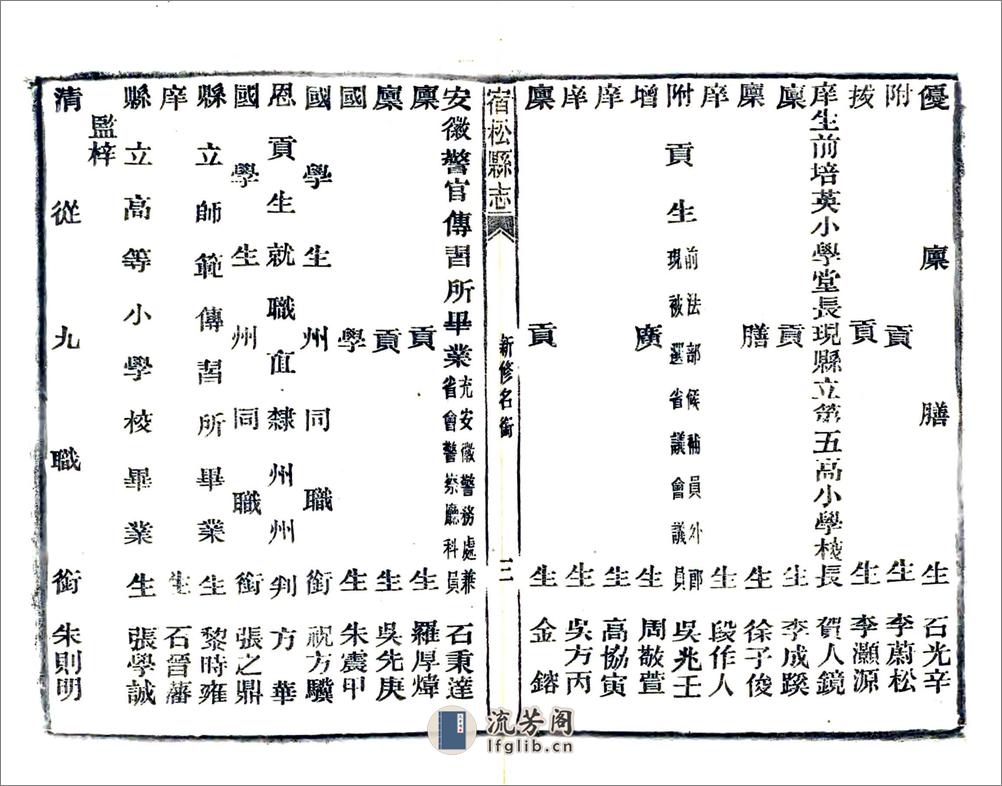 優廩膳生石光辛
附貢生李蔚松
拔貢生李灝源
庠生前培英小學堂長現縣立第五高小學校長賀人鏡
廩貢生李成蹊
廩膳生徐子俊
庠生段作人
附貢生前法部候補員外郎現被選省議會議員吳兆壬
增廣生周敬萱
庠生高協寅
庠生吳方丙
廩貢生金鎔
宿松縣志
新修名銜
三
安徽警官傳習所畢業充安徽警務處兼省會警察廳科員石秉達
廩貢生羅厚煒
廩貢生吳先庚
國學生朱震甲
國學生州同職銜祝方驥
恩貢生就職直隸州州判方華
國學生州同職銜張之鼎
縣立師範傳習所畢業生黎時雍
庠生石晉藩
縣立高等小學校畢業生張學誠
監梓
清從九職銜朱則明
流芳阁
lfglib.cn